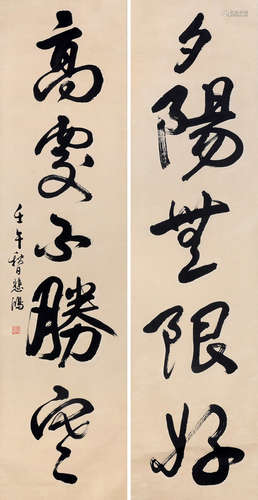 夕陽無限好
高處不勝寒
壬午秋日悲鴻